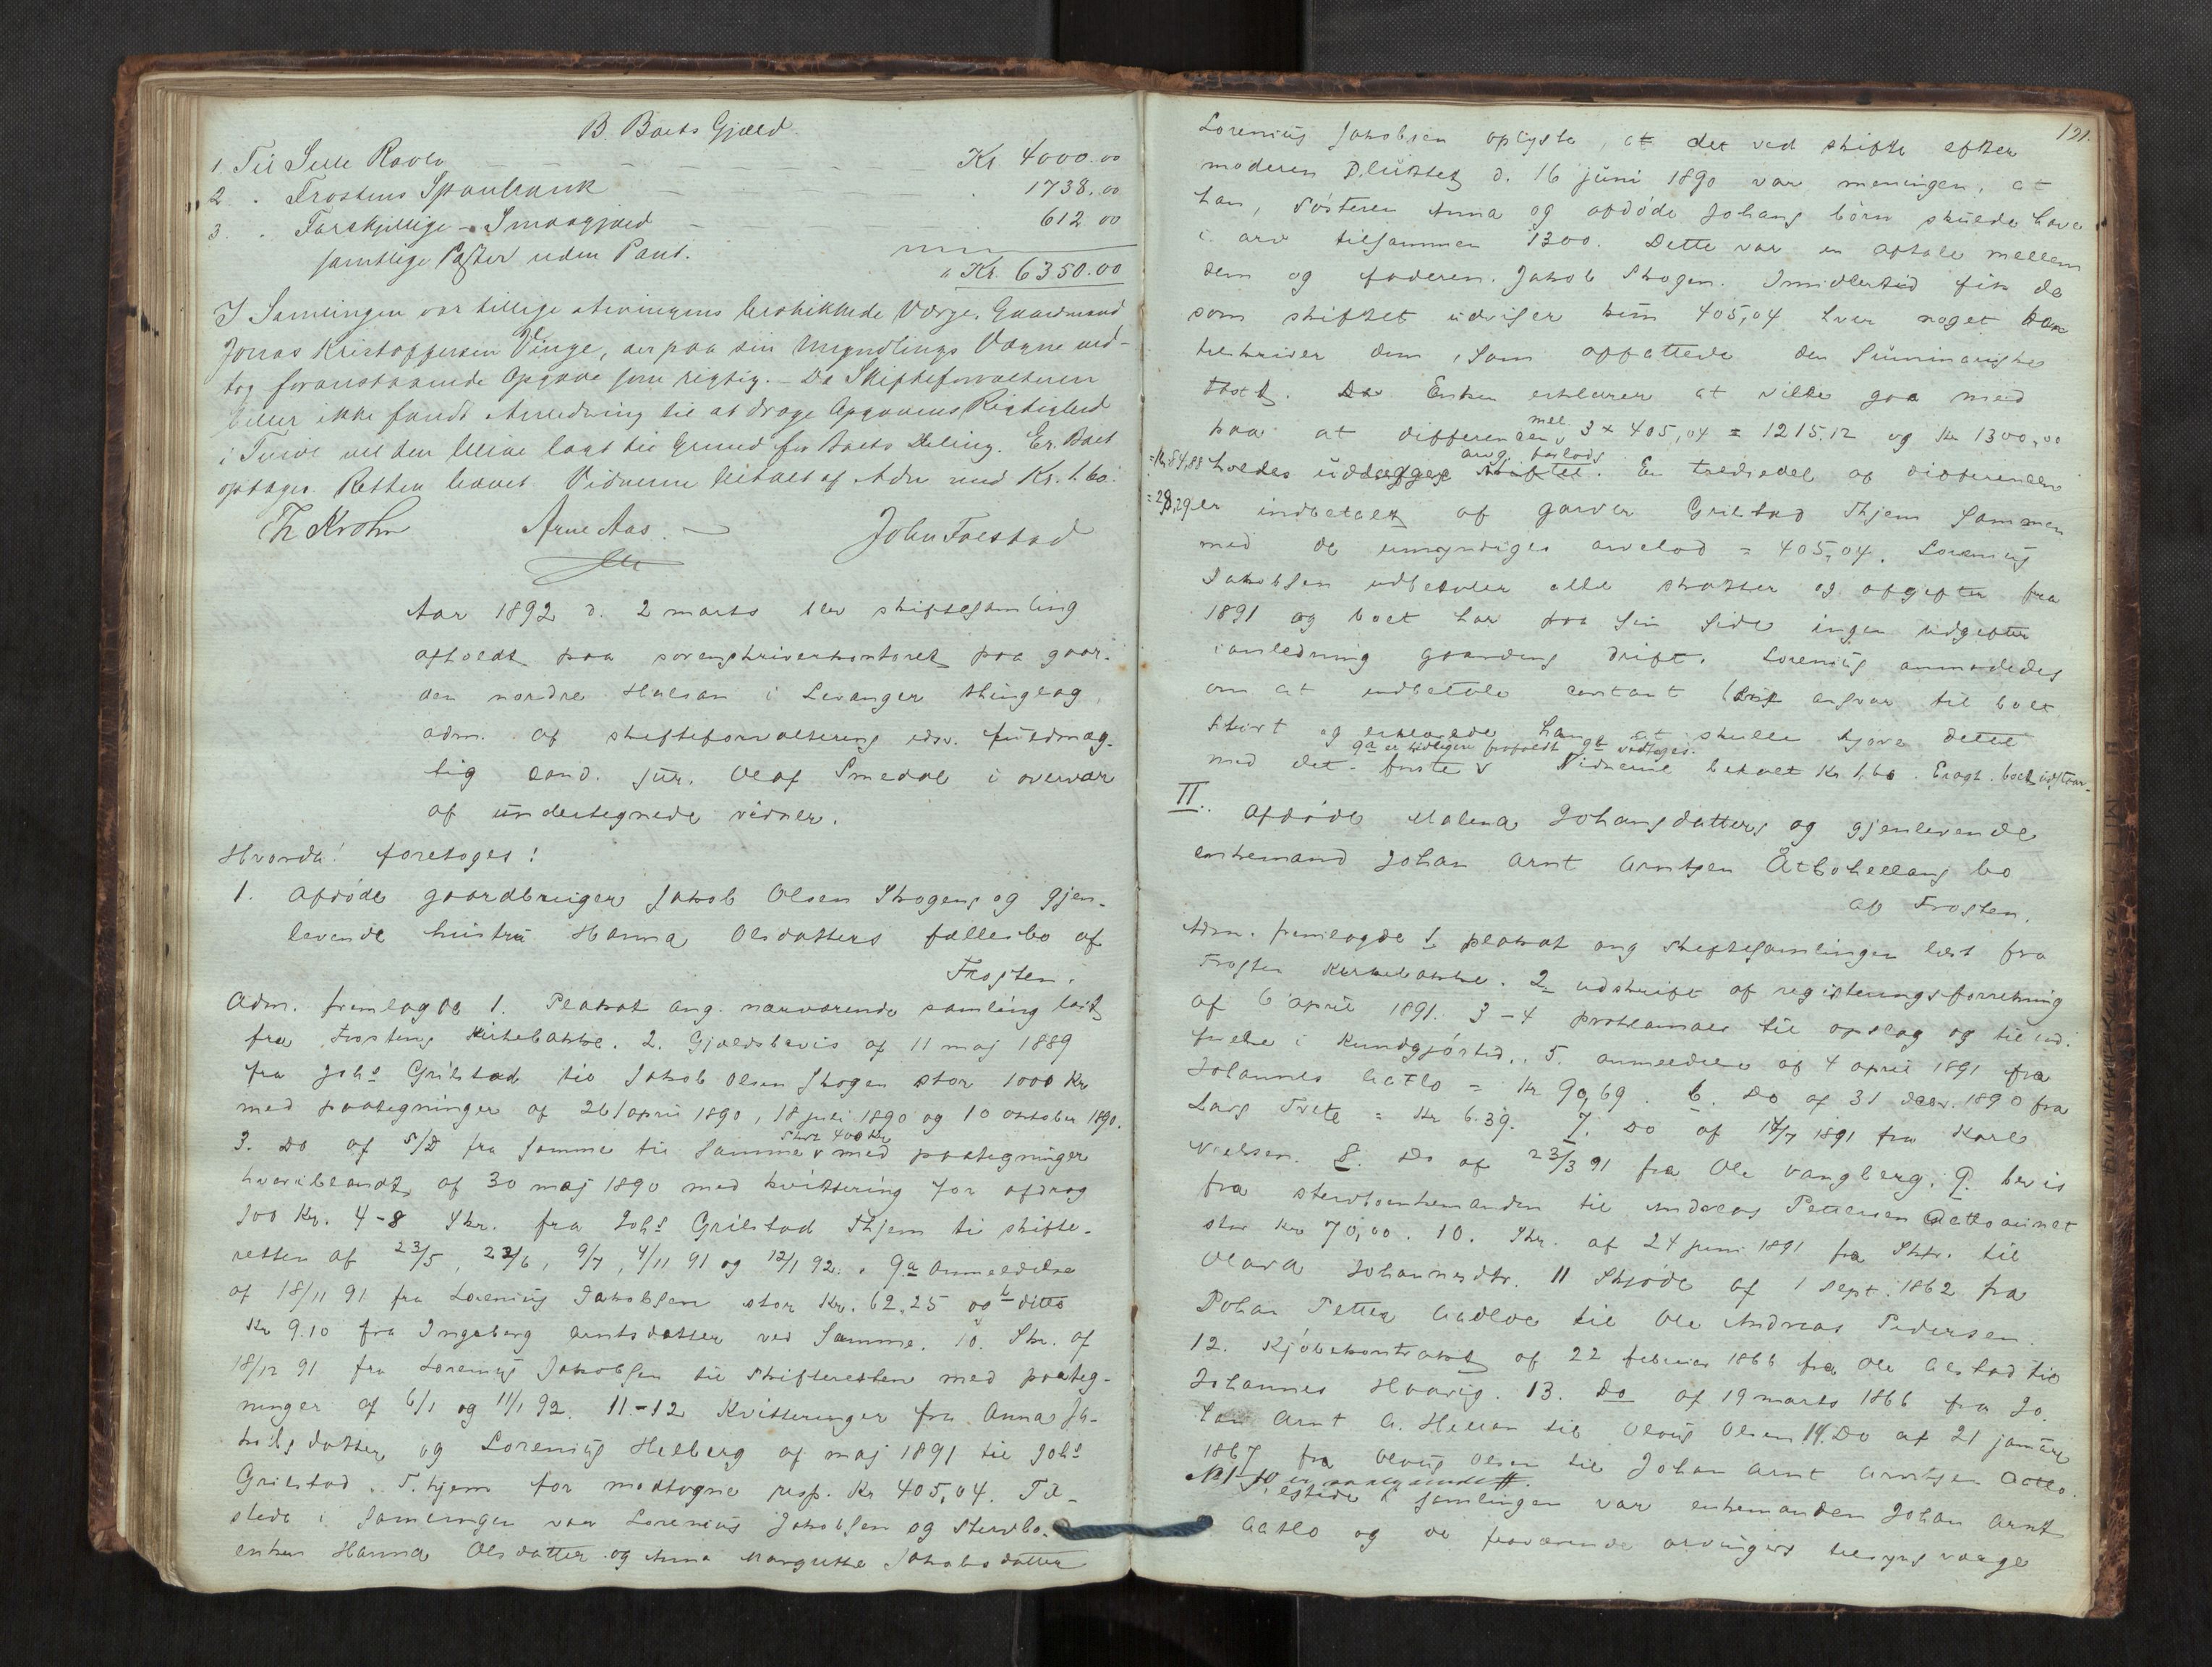 B. Boets Gjæld
1. Til Selle Ravlo Kr. 4000.00
2. Frostens Sparebank 1738.00
3. Forskjellige Smaagjæld 612 00
samtlige Poster uden Pant.
Kr. 6350.00
I Samlingen var tillige arvingens beskikkede Værge, Gaardmand
Jonas Kristoffersen Vinge, der paa sin Myndlings Vægne ved-
tog foranstaaende Opgave som rigtig. – Da Skifteforvalteren
heller ikke fandt Anledning til at drage Opgavens Rigtighed
i Tvivl vil den blive lagt til Grund for Boets Deling. Er. Boet
optages. Retten hævet. Vidnerne betalt af Adm med Kr. 1.60.
Th Krohn Arne Aas. John Folstad
Aar 1892 d. 2 marts blev skiftesamling
afholdt paa sorenskriverkontoret paa gaar-
den nordre Halsan i Levanger thinglag,
adm. af skifteforvalterens edsv. fuldmæg-
tig cand. jur. Olaf Smedal i overvær
af undertegnede vidner.
Hvorda! foretoges!
1. Afdøde gaardbruger Jakob Olsen Skogens og gjen-
levende hustru Hanna Olsdatters fællesbo af
Frosten.
Adm. fremlagde 1. Plakat ang. nærværende samling læst
fra Frostens Kirkebakke. 2. Gjældsbevis af 11 maj 1889
fra Johs Grilstad til Jakob Olsen Skogen stor 1000 Kr
med paategninger af 26 april 1890, 18 juli 1890 og 10 oktober 1890.
3. Do af S/D fra samme til samme stort 400 Kr med paategninger
hvoriblandt af 30 maj 1890 med kvittering for afdrag
100 Kr. 4-8 Skr. fra Johs Grilstad Thjem til skifte-
retten af 23/5, 22/6, 9/7, 4/11 91 og 12/1 92. 9a Anmeldelse
af 18/11 91 fra Lorenius Jakobsen stor Kr. 62,25 og b ditto
Kr 9.10 fra Ingeborg Arntsdatter ved samme. 10. Skr. af
18/12 91 fra Lorenius Jakobsen til skifteretten med paateg-
ninger af 6/1 og 11/1 92. 11-12 Kvitteringer fra Anna Ja-
kobsdatter og Lorenius Helberg af maj 1891 til Johs
Grilstad. T.hjem for modtagne resp. Kr 405,04. Til-
stede i samlingen var Lorenius Jakobsen og stervbo-
enken Hanna Olsdatter og Anna Margrethe Jakobsdatter
121.
Lorenius Jakobsen oplyste, at det ved skifte efter
moderen sluttet d. 16 juni 1890 var meningen, at
han, søsteren Anna og afdøde Johans børn skulde have
i arv tilsammen 1300. Dette var en aftale mellem
dem og faderen Jakob Skogen. Imidlertid fik de
som skiftet udviser kun 405,04 hver noget han
tilskriver dem, som opfattede den summarisk
. Da Enken erklærer at ville gaa med
paa at differencen mel 3 x 405,04 = 1215,12 og Kr 1300,00
= Kr 84,88 holdes udlægges ang. forlods skiftet. En trediedel af differencen
= 28,29 er indbetalt af garver Grilstad Thjem sammen
med de umyndiges arvelod = 405,04. Lorenius
Jakobsen udbetaler alle skatter og afgifter fra
1891 og boet har paa sin side ingen udgifter
i anledning gaardens drift. Lorenius anmodedes
om at indbetale contant sit ansvar til boet
snart og erklærede han at skulle gjøre dette
med det første. 9a er tidligere frafaldt 9b vedtoges. Vidnerne betalt Kr. 1,60. Eragt. boet udstaar.
II. Afdøde Malena Johansdatters og gjenlevende
enkemand Johan Arnt Arntsen Aatlohellans bo
af Frosten.
Adm. fremlagde 1. plakat ang skiftesamlingen læst fra
Frosten Kirkebakke. 2. udskrift af registreringsforretning
af 6 april 1891. 3-4 proklamaer til opslag og til ind-
rykkelse i Kundgjørtid.. 5. anmeldelse af 4 april 1891 fra
Johannes Aatlo = Kr 90,69. 6. Do af 31 decbr. 1890 fra
Lars Trete = Kr 6.39. 7. Do af 14/7 1891 fra Karl
Nielsen. 8. Do af 23/3 91 fra Ole Vangberg. 9. bevis
fra stervboenkemanden til Andreas Pettersen Aatloaunet
stor Kr 70,00. 10. Skr. af 24 juni 1891 fra Skfr. til
Olava Johannesdtr. 11 Skjøde af 1 sept. 1862 fra
Johan Petter Aadloe til Ole Andreas Pedersen.
12. Kjøbekontrakt af 22 februar 1866 fra Ole Alstad til
Johannes Hoavig. 13. Do af 19 marts 1866 fra Jo-
han Arnt A. Hellan til Olaus Olsen. 14. Do af 21 januar
1867 fra Olaus Olsen til Johan Arnt Arntsen Aatlo.
Tilstede i samlingen var enkemanden Johan Arnt
Aatlo og de fraværende arvingers tilsynsværge